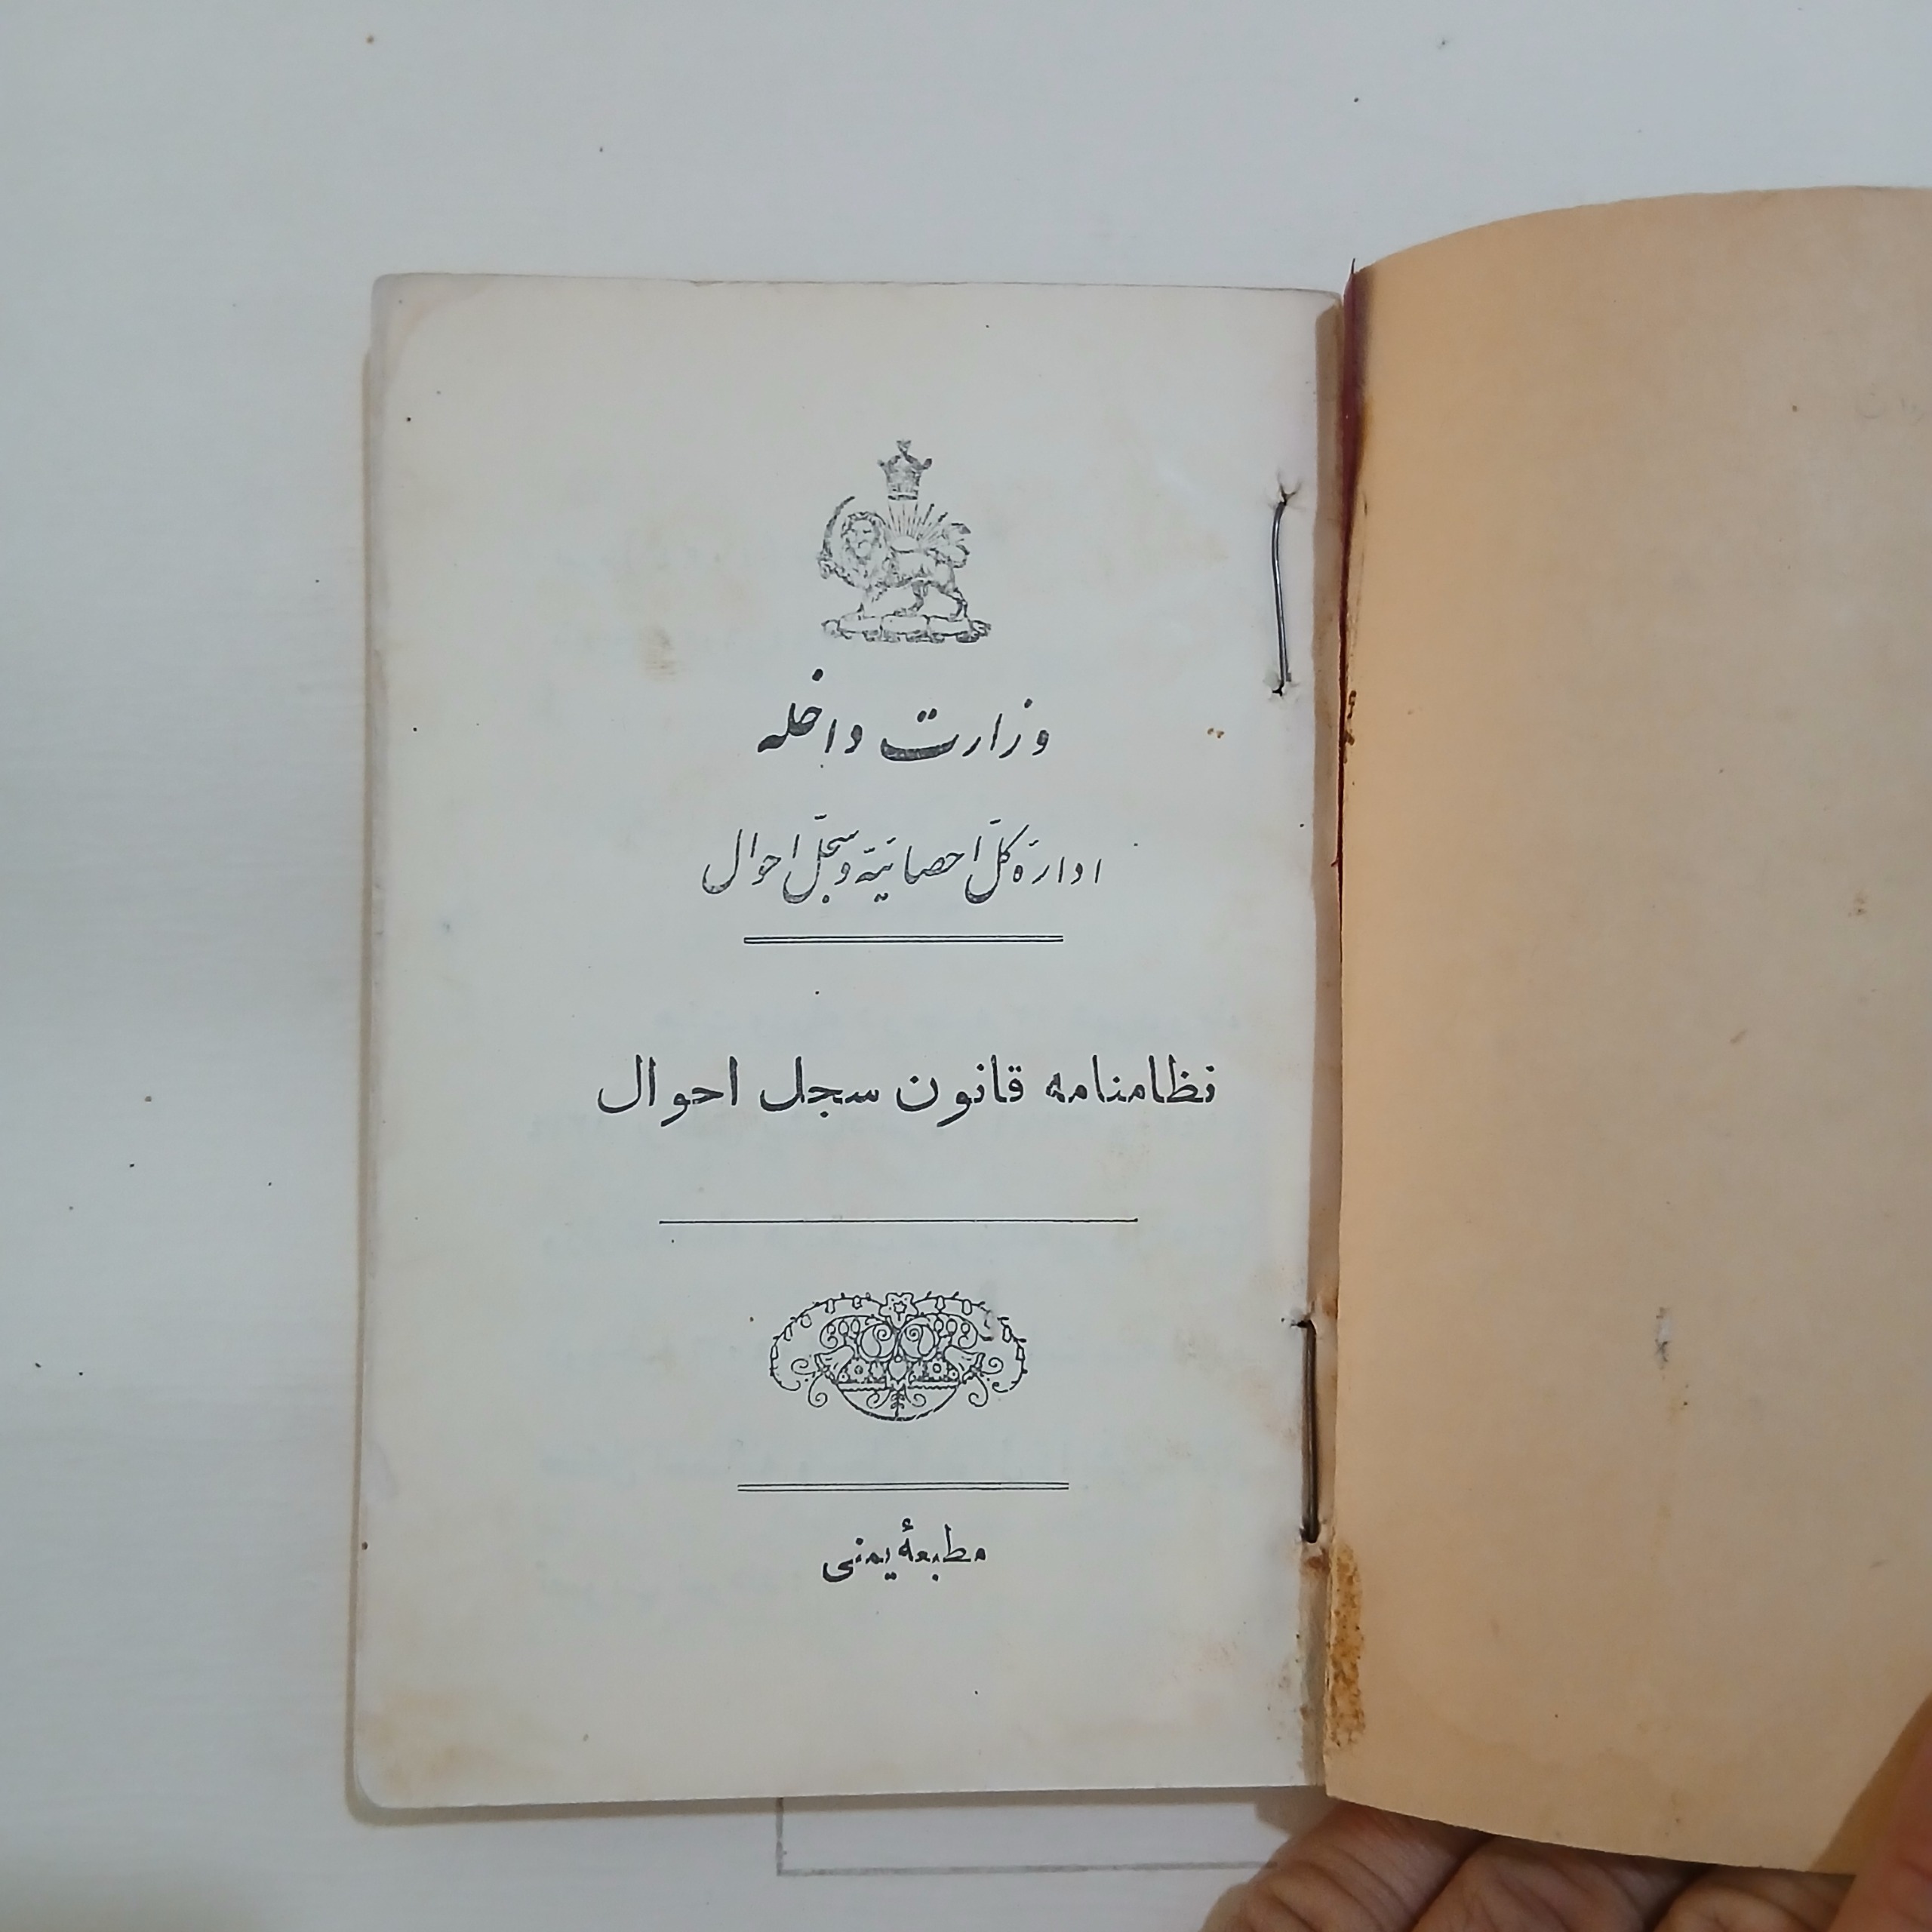 وزارت داخله
ادارهٔ کلّ احصائیّه و سجلّ احوال
نظامنامه قانون سجل احوال
مطبعهٔ یمنی